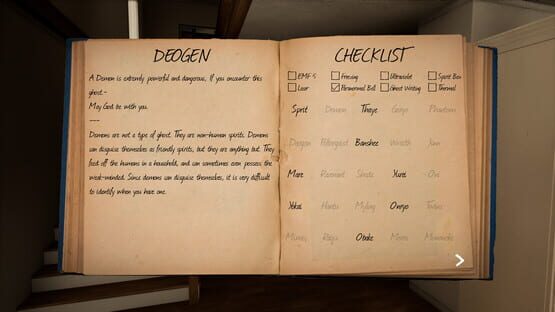 DEOGEN
A Demon is extremely powerful and dangerous, If you encounter this
ghost.-
May God be with you.
---
Demons are not a type of ghost. They are non-human spirits. Demons
can disguise themselves as friendly spirits, but they are anything but. They
feed off the humans in a household, and can sometimes even possess the
weak-minded. Since demons can disguise themselves, it is very difficult
to identify when you have one.
CHECKLIST
EMF 5 Freezing Ultraviolet Spirit Box
Laser Paranormal Bell Ghost Writing Thermal
Spirit Demon Thaye Goryo Phantom
Deogen Poltergeist Banshee Wraith Jinn
Mare Revenant Shade Yurei Oni
Yokai Hantu Myling Onryo Twins
Mimic Raiju Obake Moroi